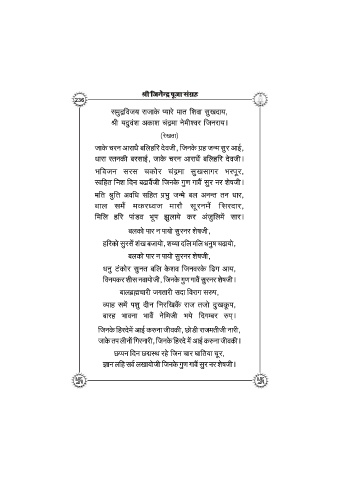 श्री जिनेन्द्र पूजा संग्रह
236
समुद्रविजय राजाके प्यारे मात शिवा सुखदाय,
श्री यदुवंश अकाश चंद्रमा नेमीश्वर जिनराय।
(रेखता)
जाके चरन आराधै बलिहरि देवजी, जिनके ग्रह जन्म सुर आई,
धारा रतनकी बरसाई, जाके चरन आराधें बलिहरि देवजी।
भविजन सरस चकोर चंद्रमा सुखसागर भरपूर,
स्वहित निश दिन बढावैंजी जिनके गुण गावैं सुर नर शेषजी।
मति श्रुति अवधि सहित प्रभु जन्मे बल अनन्त तन धार,
बाल समैं मकरध्वज मारो सूरनमें सिरदार,
मिलि हरि पांडव भूप झुलाये कर अंजुलिमें सार।
बलको पार न पायो सुरनर शेषजी,
हरिको सुरसें शंख बजायो, शय्या दलि मलि धनुष चढायो,
बलको पार न पायो सुरनर शेषजी,
धनु टंकोर सुनत बलि केशव जिनवरके ढिग आय,
विनयकर शीस नवायोजी, जिनके गुण गावैं सुरनर शेषजी।
बालब्रह्मचारी जगतारी सदा विराग सरुप,
व्याह समैं पशु दीन निरखिकें राज तजो दुखकूप,
बारह भावना भावें नेमिजी भये दिगम्बर रुप।
जिनके हिरदेमें आई करुना जीवकी, छोडी राजमतीजी नारी,
जाके तप लीनों गिरनारी, जिनके हिरदे में आई करुना जीवकी।
छप्पन दिन छद्मस्थ रहे जिन चार घातिया चूर,
ज्ञान लहि सर्व लखायोजी जिनके गुण गावैं सुर नर शेषजी।